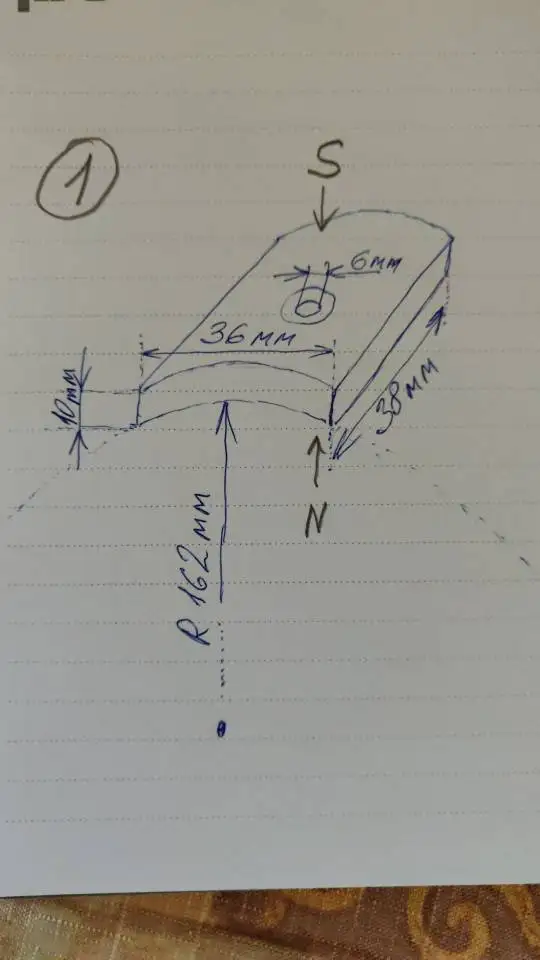 1
S
6мм
36мм
10мм
38мм
R 162мм
N